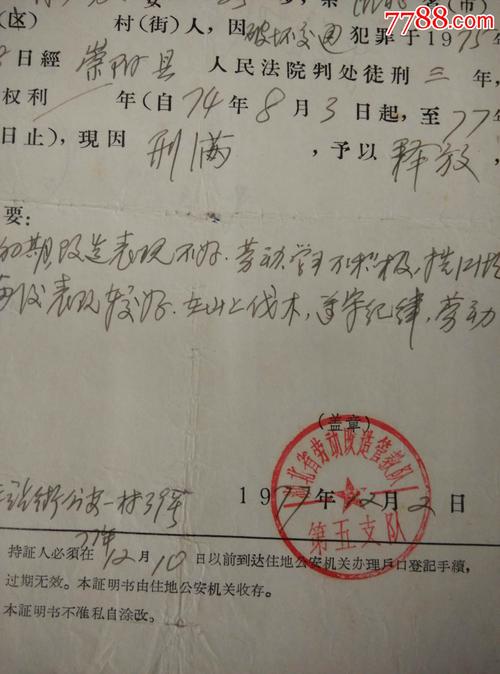 7788.com
村(街)人，因破坏交通犯罪于1975年
日經崇阳县人民法院判处徒刑三年，
权利／年(自74年8月3日起，至77年
日止)，現因刑满，予以释放，
要：
初期改造表现不好，劳动学习不积极，
表现较好，在山上伐木，遵守纪律，劳动
(盖章)
湖北省劳动改造管教队
第五支队
1977年12月2日
持証人必须在77年12月10日以前到达住地公安机关办理戶口登記手續，
过期无效。本証明书由住地公安机关收存。
本証明书不准私自涂改。